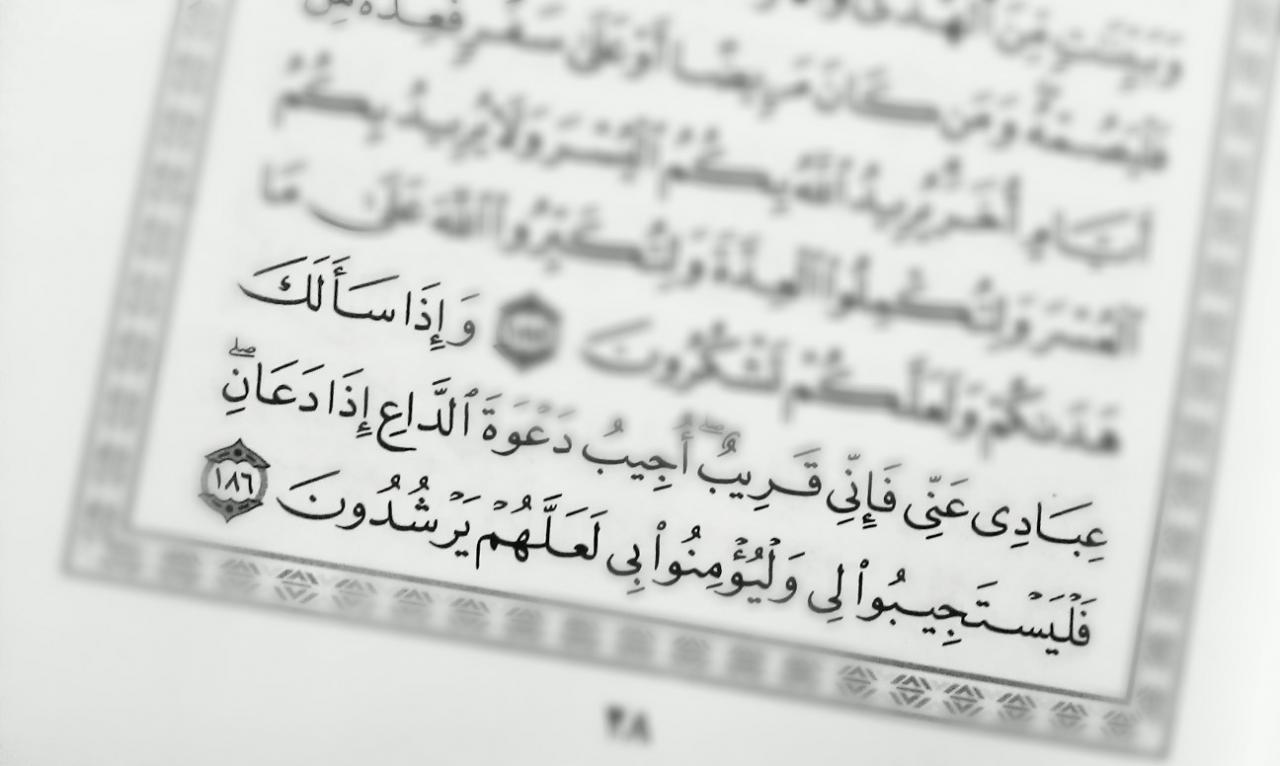 وَبَيِّنَٰتٍ مِّنَ ٱلْهُدَىٰ
فَلْيَصُمْهُ ۖ وَمَن كَانَ مَرِيضًا أَوْ عَلَىٰ سَفَرٍ فَعِدَّةٌ مِّنْ
أَيَّامٍ أُخَرَ ۗ يُرِيدُ ٱللَّهُ بِكُمُ ٱلْيُسْرَ وَلَا يُرِيدُ بِكُمُ
ٱلْعُسْرَ وَلِتُكْمِلُوا۟ ٱلْعِدَّةَ وَلِتُكَبِّرُوا۟ ٱللَّهَ عَلَىٰ مَا
هَدَىٰكُمْ وَلَعَلَّكُمْ تَشْكُرُونَ ١٨٥ وَإِذَا سَأَلَكَ
عِبَادِى عَنِّى فَإِنِّى قَرِيبٌ ۖ أُجِيبُ دَعْوَةَ ٱلدَّاعِ إِذَا دَعَانِ ۖ
فَلْيَسْتَجِيبُوا۟ لِى وَلْيُؤْمِنُوا۟ بِى لَعَلَّهُمْ يَرْشُدُونَ ١٨٦
٢٨